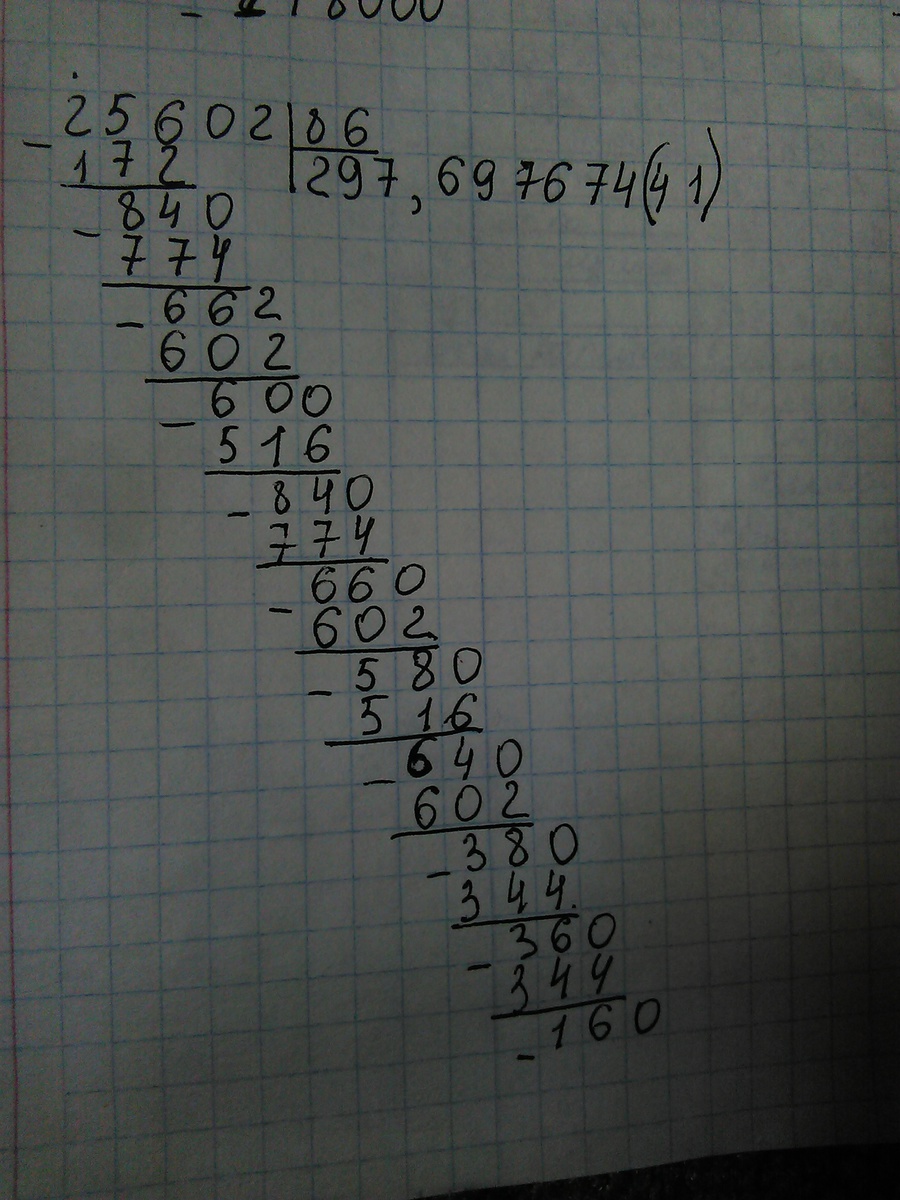 25602 | 86
- 172 | 297,697674(41)
840
- 774
662
- 602
600
- 516
840
- 774
660
- 602
580
- 516
640
- 602
380
- 344
360
- 344
160
-